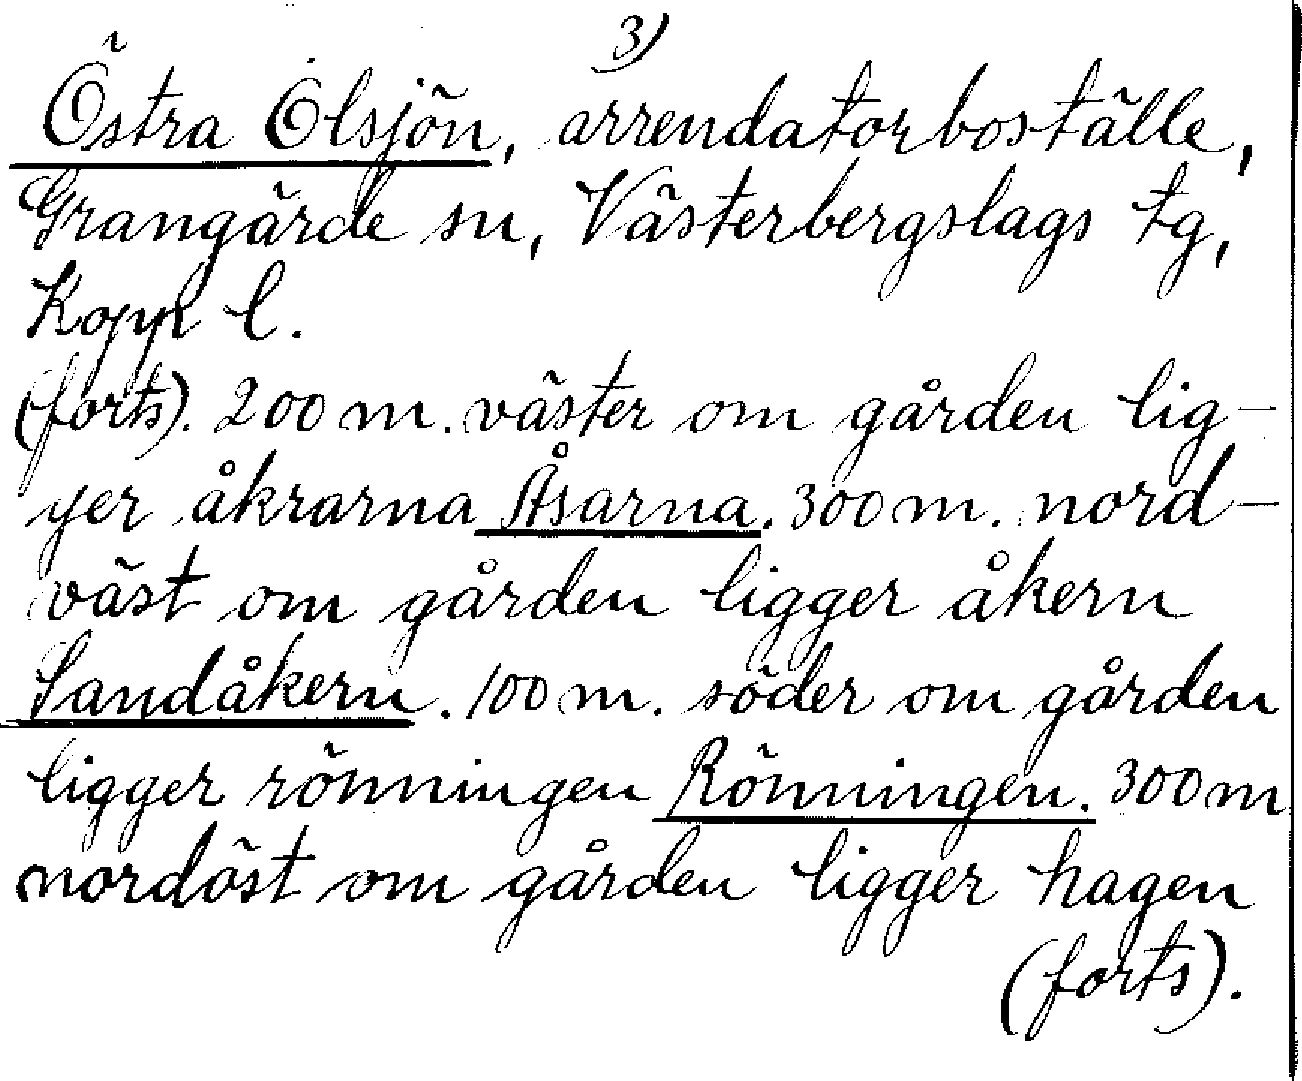 3)
Östra Olsjön, arrendatorboställe,
Grangärde sn, Västerbergslags tg,
Kopp l.
(forts). 200 m. väster om gården lig-
ger åkrarna Åsarna. 300 m. nord-
väst om gården ligger åkern
Sandåkern. 100 m. söder om gården
ligger rönningen Rönningen. 300 m
nordöst om gården ligger hagen
(forts).